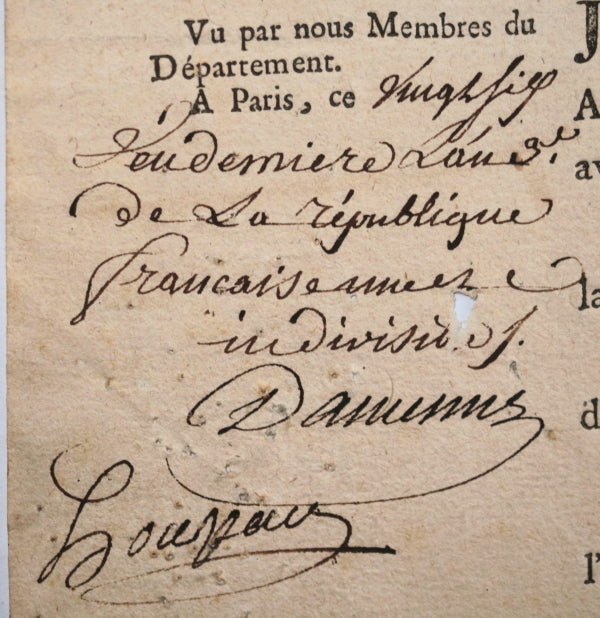 Vu par nous Membres du
Département.
A Paris, ce vingt six
Vendemiere L'an 3.e
de La république
francaise une et
indivisible.
J
A
av
la
d
l'